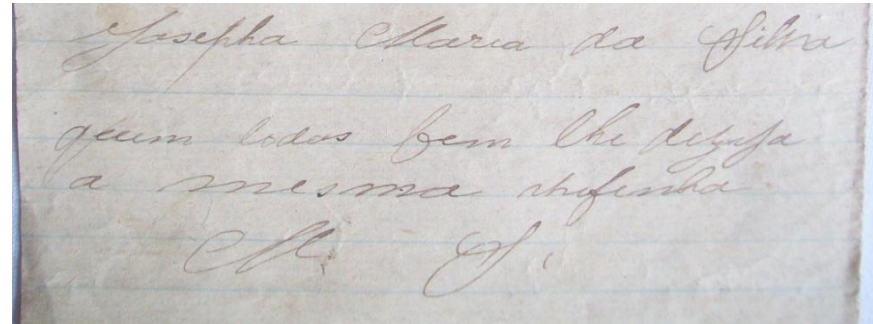 Josepha Maria da Silva
quem todos bem lhe dezeja
a mesma
M. S.